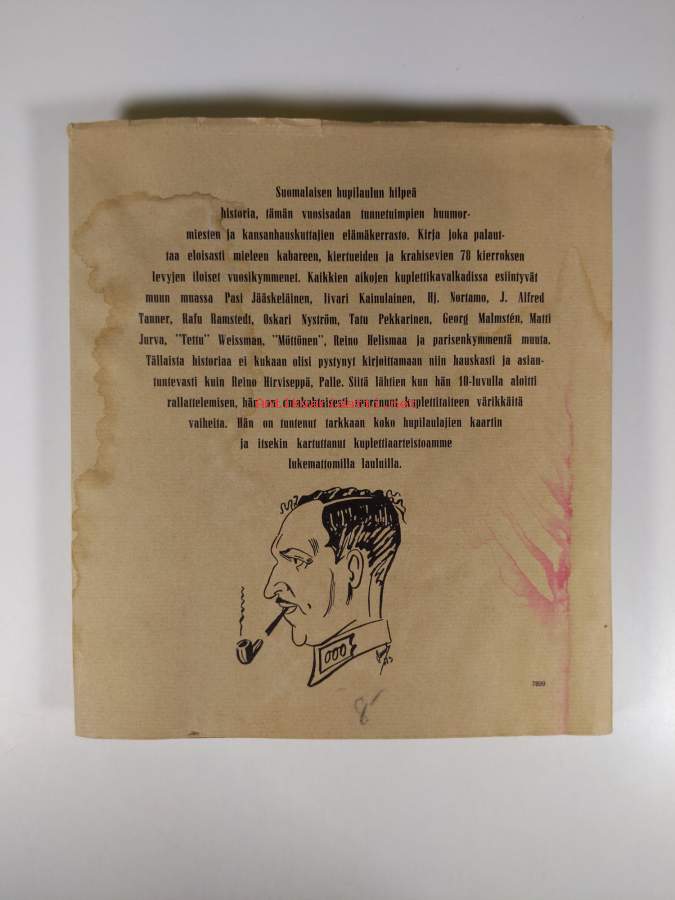 Suomalaisen hupilaulun hilpeä
historia, tämän vuosisadan tunnetuimpien huumor-
miesten ja kansanhauskuttajien elämäkerrasto. Kirja joka palaut-
taa eloisasti mieleen kabareen, kiertueiden ja krahisevien 78 kierroksen
levyjen iloiset vuosikymmenet. Kaikkien aikojen kuplettikavalkadissa esiintyvät
muun muassa Pasi Jääskeläinen, Iivari Kainulainen, Hj. Nortamo, J. Alfred
Tanner, Rafu Ramstedt, Oskari Nyström, Tatu Pekkarinen, Georg Malmstén, Matti
Jurva, "Tettu" Weissman, "Möttönen", Reino Helismaa ja parisenkymmentä muuta.
Tällaista historiaa ei kukaan olisi pystynyt kirjoittamaan niin hauskasti ja asian-
tuntevasti kuin Reino Hirviseppä, Palle. Siitä lähtien kun hän 10-luvulla aloitti
rallattelemisen, hän on seurannut kuplettitaiteen värikkäitä
vaiheita. Hän on tuntenut tarkkaan koko hupilaulajien kaartin
ja itsekin kartuttanut kuplettiaarteistoamme
lukemattomilla lauluilla.
7899
8-